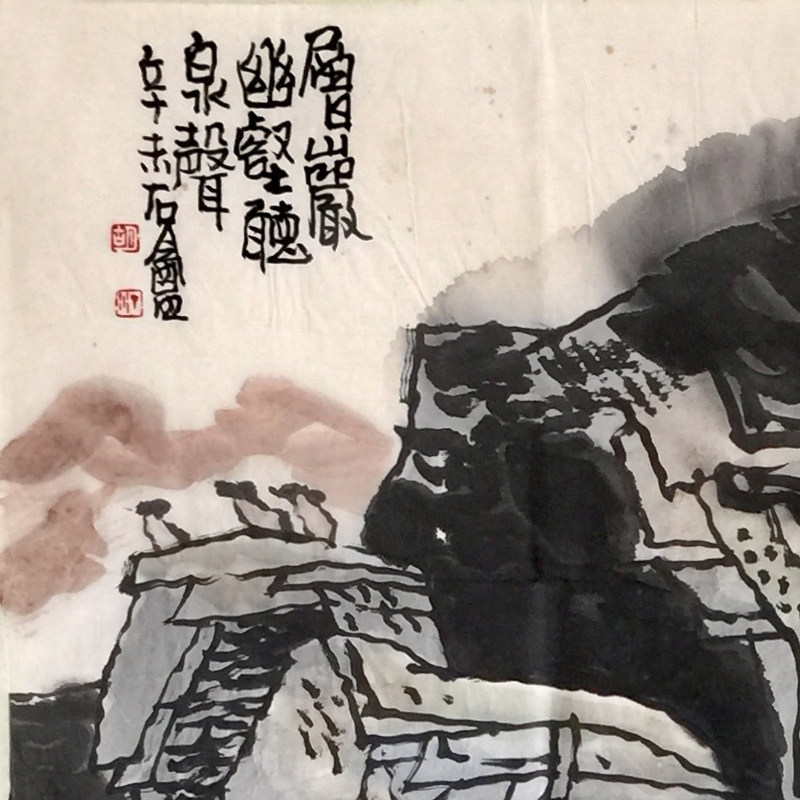 層巖
幽壑聽
泉聲
辛未石盦